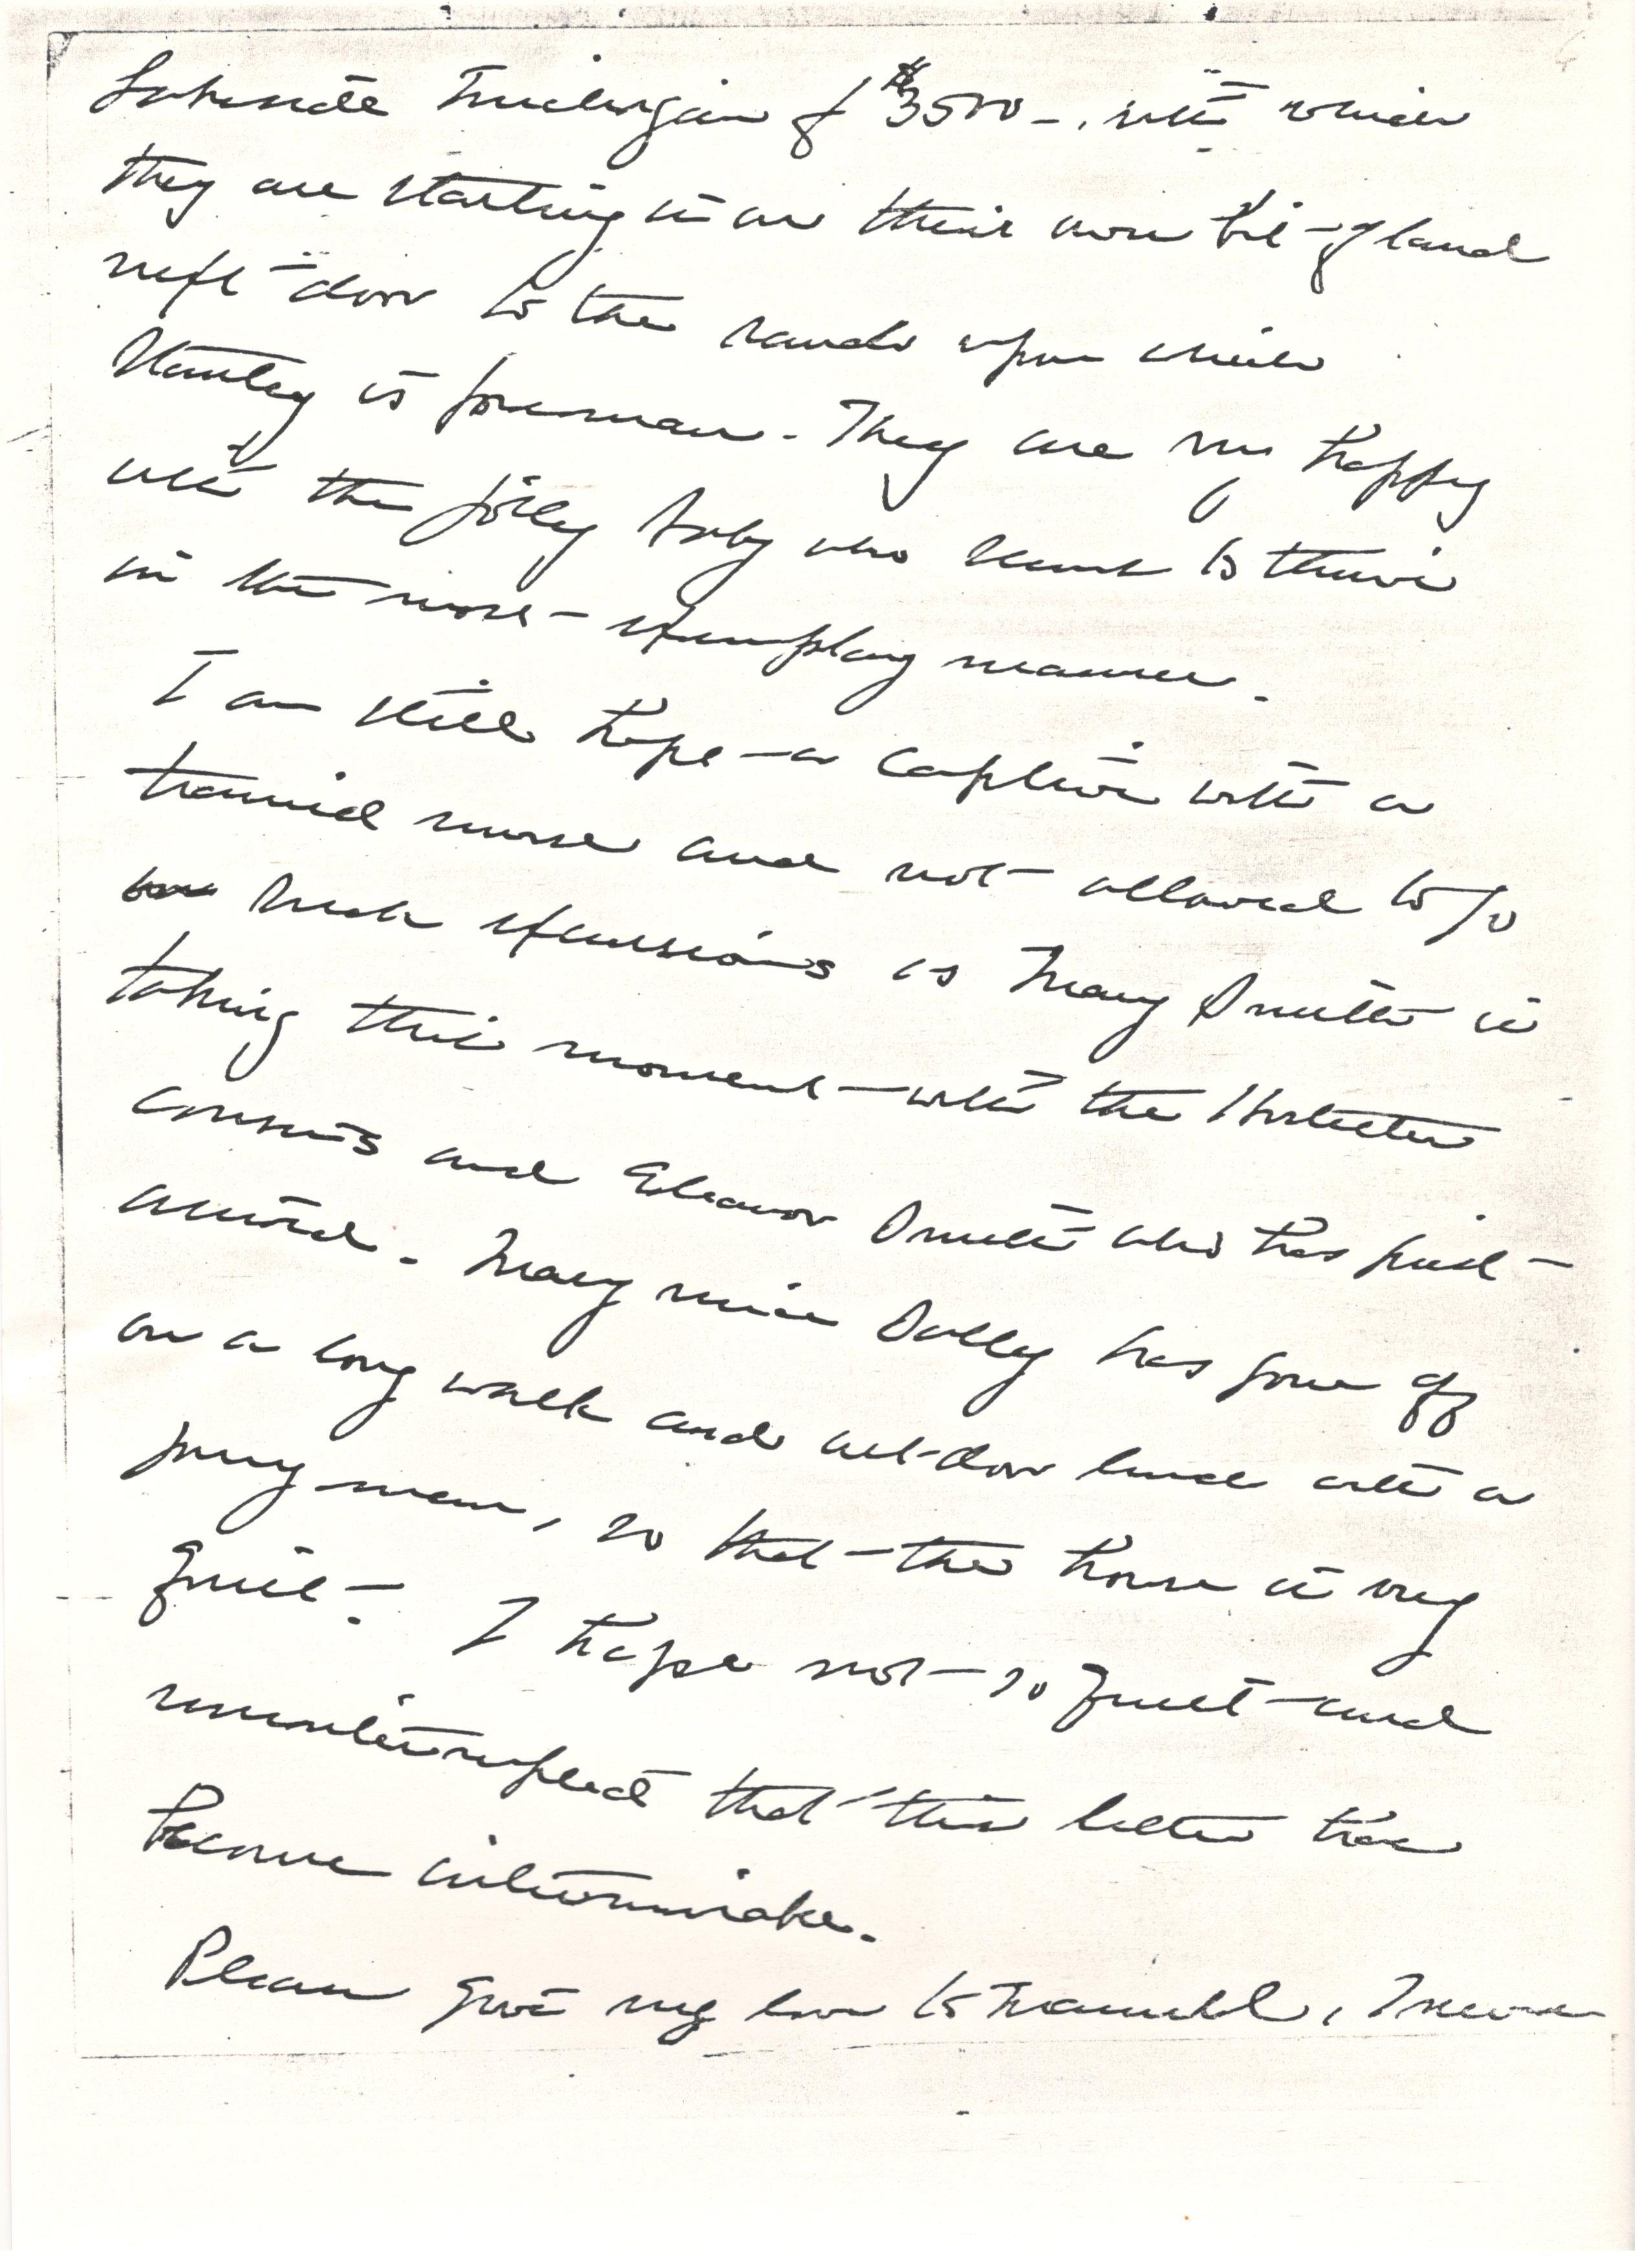 fortunate of $3500 -, with which
they are starting in on their own bit of land
next door to the ranch upon which
Stanley is foreman. They are very happy
with the jolly baby who seems to thrive
in the most exemplary manner.
I am still kept a captive with a
trained nurse and not allowed to go
such excursions as Mary Smith is
taking this moment with the Hostetter
cousins and Eleanor Smith who has just
arrived. Mary niece Dolly has gone off
on a long walk and out-door lunch with a
young man, so that the house is very
quiet. I hope not so quiet and
uninterrupted that this letter has
become interminable.
Please give my love to